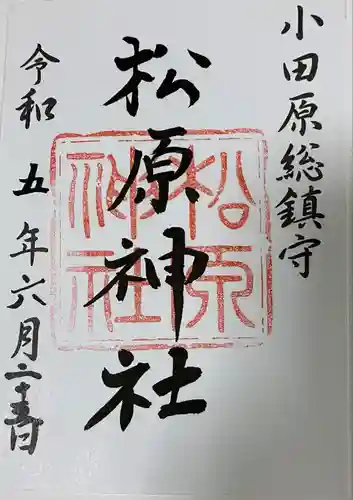 小田原総鎮守
松原神社
松原神社
令和五年六月二十五日